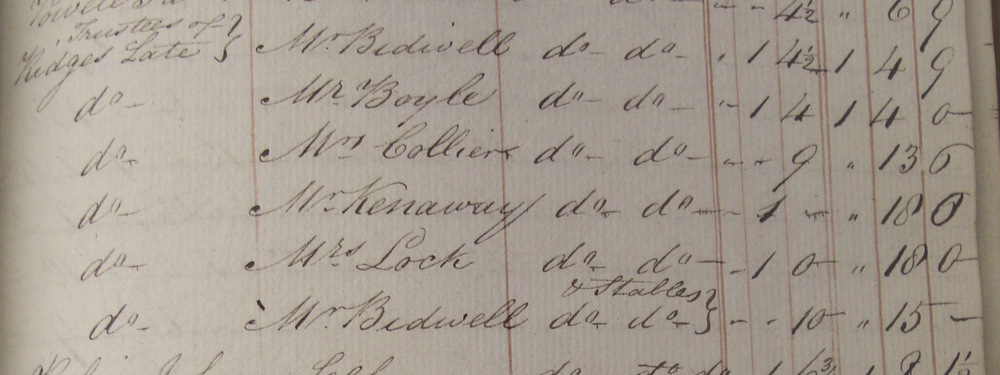 Trustees of }
Ridges Late } Mr Bidwell do do " 1 4½ 1 4 9
do Mr Boyle do do " 1 4 1 4 0
do Mrs Collier do do " " 9 " 13 6
do Mr Kenaway do do - 1 - " 18 0
do Mrs Lock do do - 1 0 " 18 0
& Stables }
do Mr Bidwell do do } - - 10 " 15 -